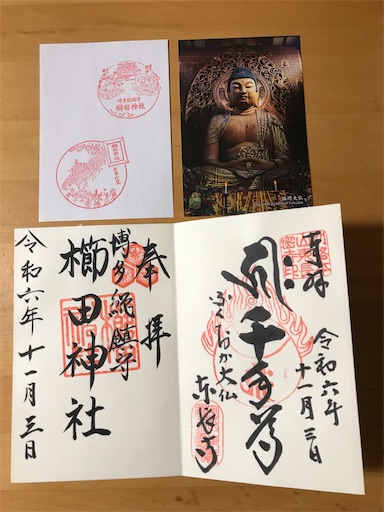 博多総鎮守
櫛田神社
櫛田神社
福岡大仏
奉拝
博多総鎮守
櫛田神社
令和六年十一月三日
奉拝
令和六年
十一月三日
千手尊
ふくおか大仏
東長寺